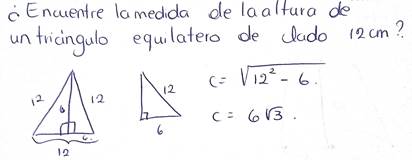 ¿ Encuentre la medida de la altura de
un triángulo equilatero de lado 12 cm?
12 6 12
6
12
12
6
c = √12² - 6
c = 6√3.